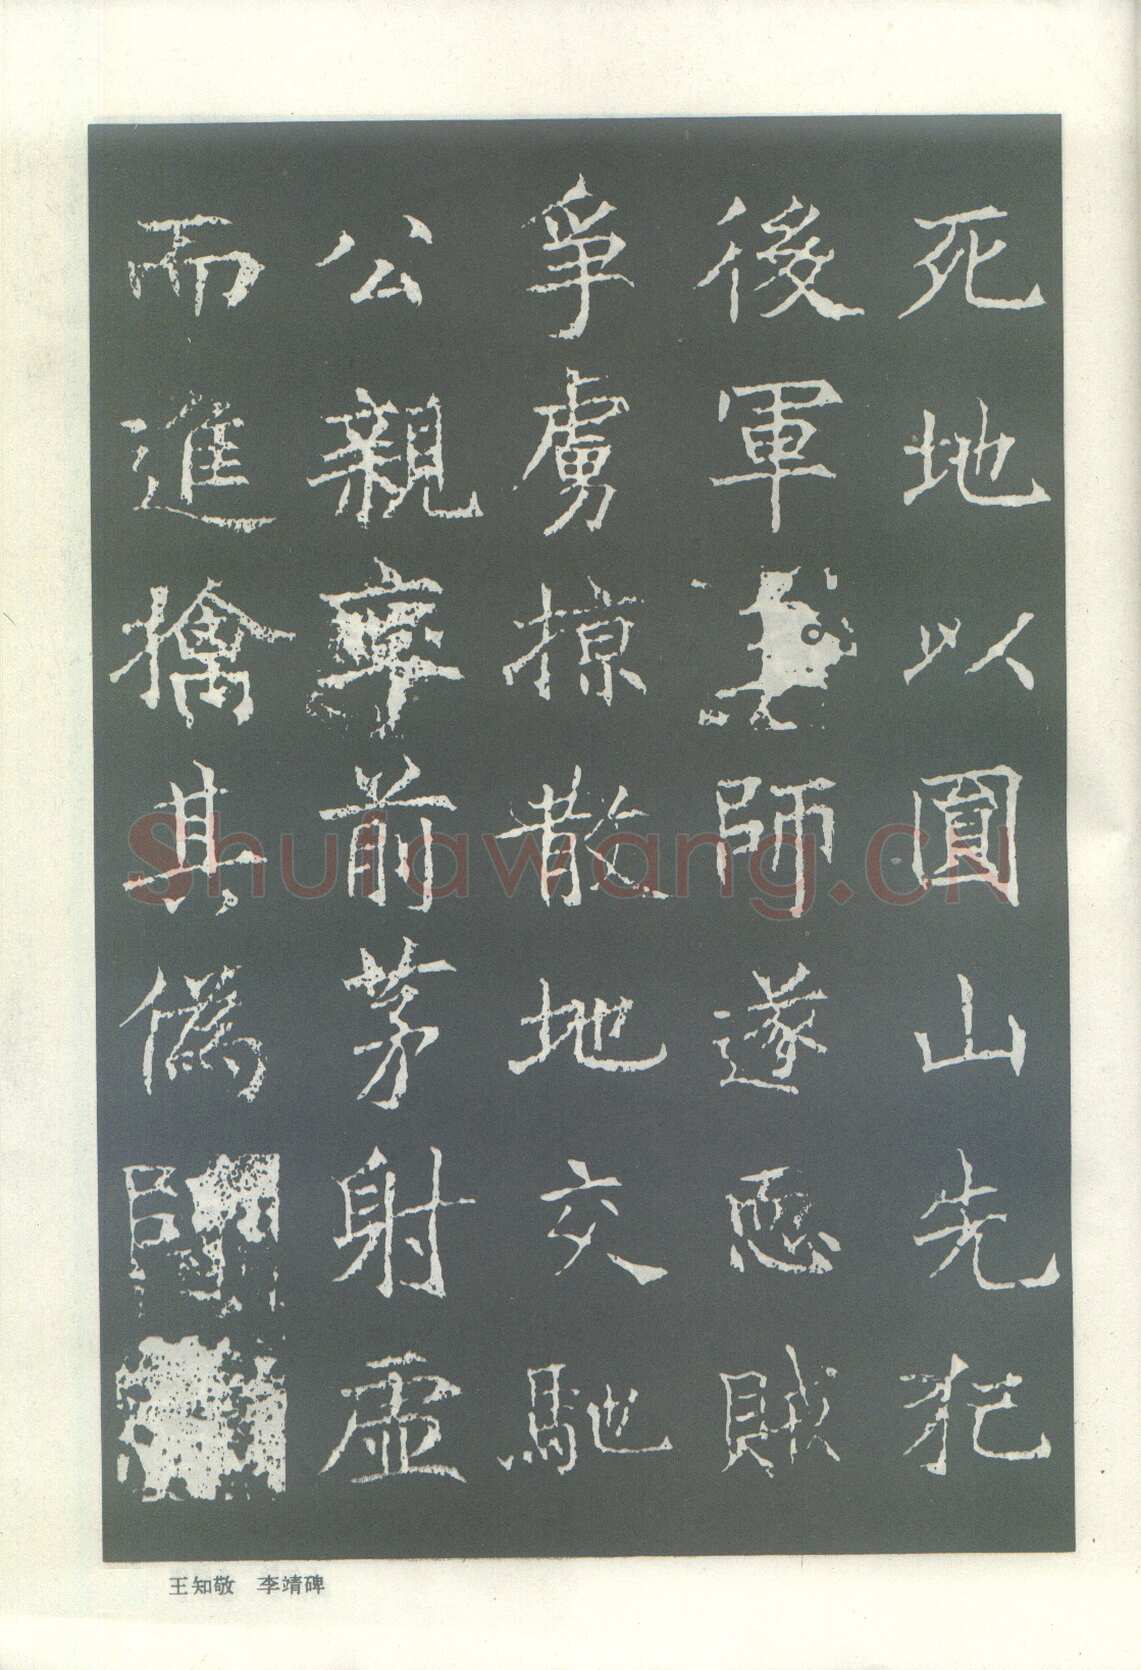 死地以圓山先犯
後軍師遂惡賊
爭虜掠散地交馳
公親率前茅射虛
而進擒其僞師
王知敬 李靖碑
Shufawang.CN